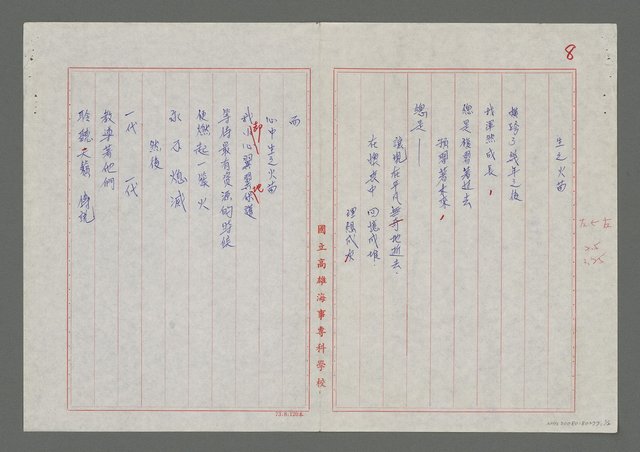 8
生之火苗
蹉跎了幾年之後
我渾然成長，
總是複習著過去
預習著未來，
總是——
讓現在平凡無奇地逝去．
在懊喪中 回憶成堆．
理想成灰
左右
2.5
國立高雄海事專科學校
而
心中生之火苗
我卻小心翼翼地保護
等待最有資源的時候
使燃起一柴火
永不熄滅
然後
一代 一代
教導著他們
聆聽天籟傳說
73.8.120本